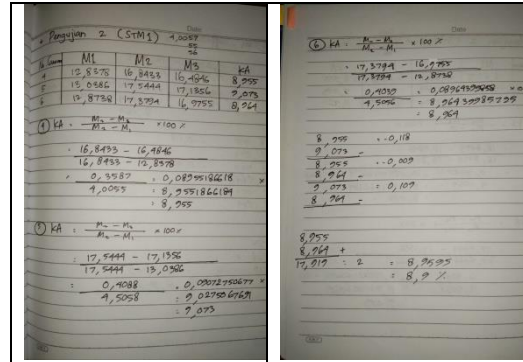 • Pengujian 2 (STM1) 4,0057
55
56
No Cawan M1 M2 M3 KA
4 12,8378 16,8433 16,4846 8,955
5 13,0386 17,5444 17,1356 9,073
6 12,8738 17,3794 16,9755 8,964
④ KA : M2 - M3 / M2 - M1 x 100 %
= 16,8433 - 16,4846
16,8433 - 12,8378
= 0,3587 = 0,08955186618 x
4,0055 = 8,955186618
= 8,955
KA : M2 - M3 / M2 - M1 x 100 %
= 17,5444 - 17,1356
17,5444 - 13,0386
= 0,4088 = 0,09072750677 x
4,5058 = 9,0275067691
= 9,073
Date
⑥ KA : M2 - M3 / M2 - M1 x 100 %
= 17,3794 - 16,9755
17,3794 - 12,8738
= 0,4039
4,5056 = 8,96439985795
= 8,964
8,955 = -0,118
9,073 -
8,955 = -0,009
8,964 -
9,073 = 0,109
8,964 -
8,955
8,964 +
17,919 : 2 = 8,9595
= 8,9 %